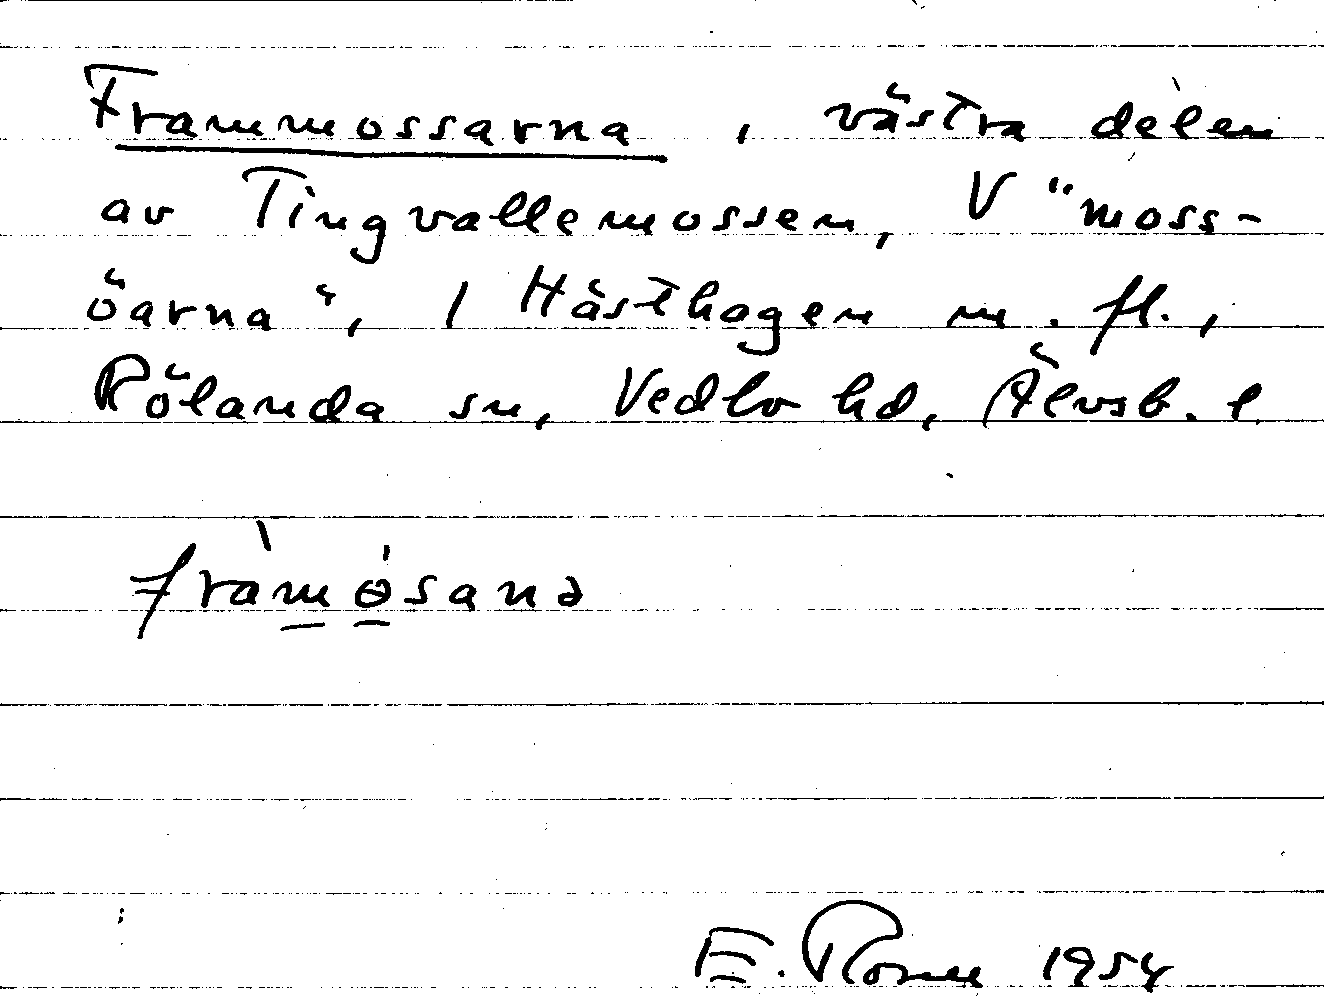 Frammossarna, västra delen
av Tingvallemossen, V "moss-
öarna", / Hästhagen m. fl.,
Rölanda sn, Vedbo hd, Älvsb. l.
fràmɵ́sanə
E. 1954